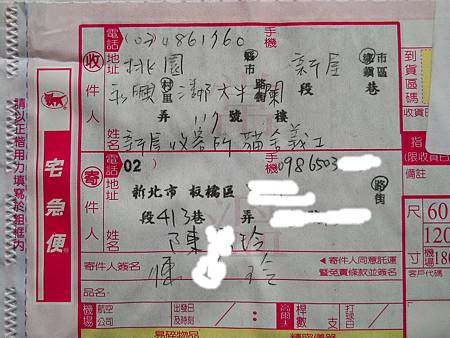 收件人
電話 (03) 4861760 手機
地址 桃園 縣市 新屋 鄉鎮 市區
永興 村里 鄰 大牛欄 路街 段 巷
弄 117 號 樓
姓名 新屋收容所貓舍義工
寄件人
電話 02) 手機 0986503
地址 新北市 板橋區 路街
段 413 巷 弄
姓名 陳 玲
◀寄件人同意託運
暨免責條款並簽名
寄件人簽名 陳 玲
品名:
機場 航空公司 出發日及時刻 / : 高爾夫 桿數 支 打球日 /
易碎物品 精密儀器
請以正楷用力填寫於粗框内
宅急便
到貨區碼
收貨日
指
(限收貨日
尺 60
120
機場 180
客戶代